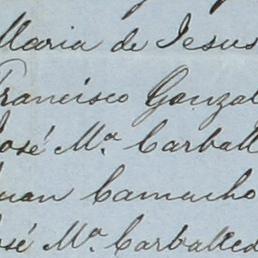 Maria de Jesus
Francisco Gonzal
José Mª Carball
Juan Camacho
José Mª Carballed